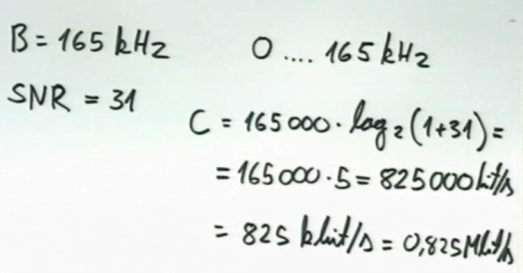 B = 165 kHz
0 .... 165 kHz
SNR = 31
C = 165 000 · log₂(1+31) =
= 165 000 · 5 = 825 000 bit/s
= 825 kbit/s = 0,825 Mbit/s